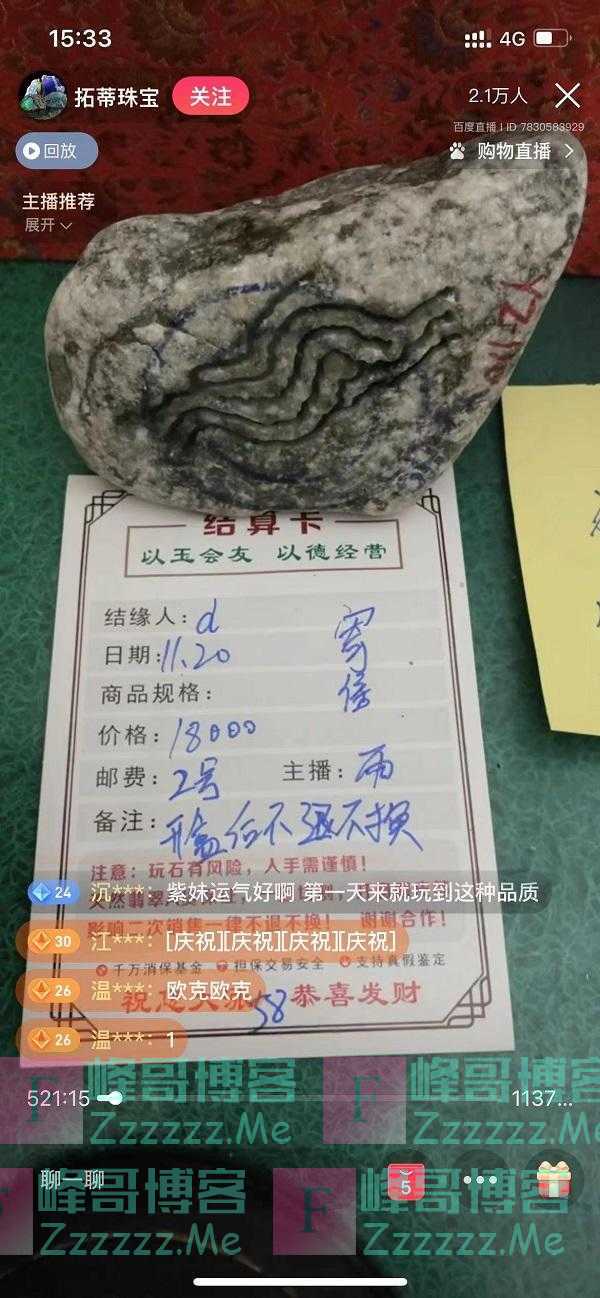 15:33
4G
拓蒂珠宝
关注
2.1万人
百度直播 | ID 7830583929
回放
购物直播
主播推荐
展开
YZ-116
结算卡
以玉会友 以德经营
结缘人：d
寄
日期：11.20
商品规格：
价格：18000
邮费：2号
主播：雨
备注：开盒后不退不换
注意：玩石有风险，入手需谨慎！
24 沉***：紫妹运气好啊 第一天来就玩到这种品质
影响二次销售一律不退不换！ 谢谢合作！
30 江***：[庆祝][庆祝][庆祝][庆祝]
千万消保基金 担保交易安全 支持真假鉴定
26 温***：欧克欧克
58 恭喜发财
26 温***：1
521:15
1137...
峰哥博客
Zzzzzz.Me
F
峰哥博客
Zzzzzz.Me
聊一聊
5
峰哥博客
Zzzzzz.Me
F
峰哥博客
Zzzzzz.Me